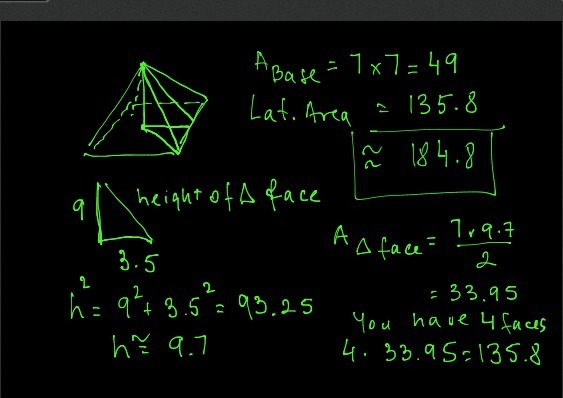 A Base = 7 x 7 = 49
Lat. Area = 135.8
≈ 184.8
9
height of Δ face
3.5
h² = 9² + 3.5² = 93.25
h ≅ 9.7
A Δ face = 7 . 9.7 / 2
= 33.95
You have 4 faces
4 . 33.95 = 135.8